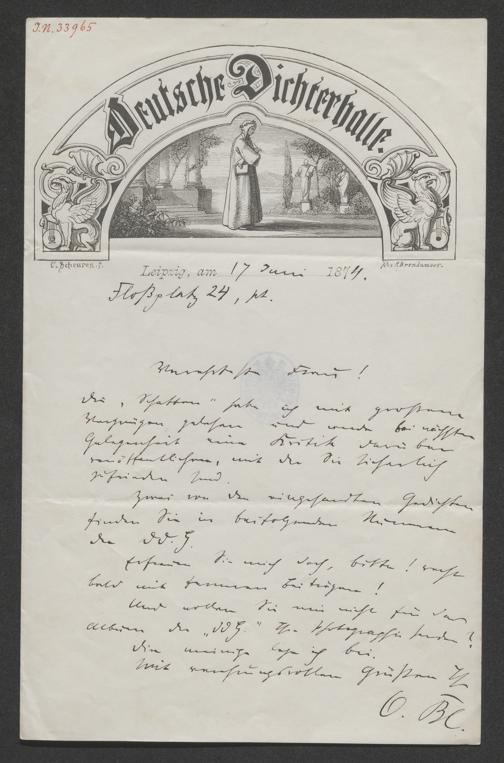 I.N. 33965
Deutsche Dichterhalle.
C. Scheuren. f.
Leipzig, am 17 Juni 1874.
Floßplatz 24, pt.
Verehrteste Frau!
Die „Schatten“ habe ich mit großem
Vergnügen gelesen und werde bei nächster
Gelegenheit eine Kritik darüber
veröffentlichen, mit der Sie sicherlich
zufrieden sind.
Zwei von den eingesandten Gedichten
finden Sie in beifolgenden Nummern
der D.D.H.
Erfreuen Sie mich doch, bitte! recht
bald mit ferneren Beiträgen!
Und wollen Sie mir nicht für das
Album der „D.D.H.“ Ihre Photographie senden?
Die meinige lege ich bei.
Mit verehrungsvollen Grüßen Ihr
O. Bl.